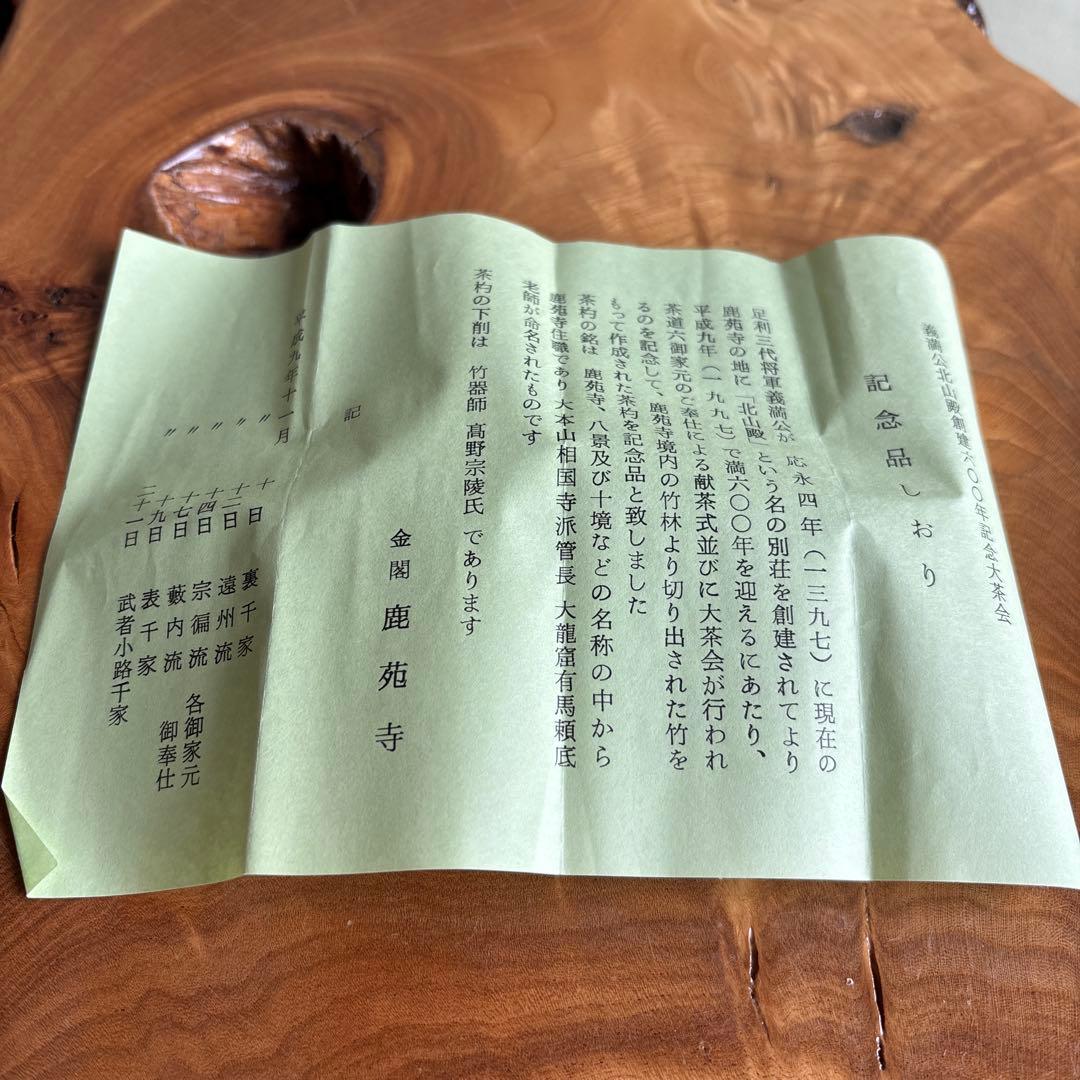 義満公北山殿創建六〇〇年記念大茶会
記念品しおり
足利三代将軍義満公が 応永四年(一三九七)に現在の
鹿苑寺の地に「北山殿」という名の別荘を創建されてより
平成九年(一九九七)で満六〇〇年を迎えるにあたり、
茶道六御家元のご奉仕による献茶式並びに大茶会が行われ
るのを記念して、鹿苑寺境内の竹林より切り出された竹を
もって作成された茶杓を記念品と致しました
茶杓の銘は 鹿苑寺、八景及び十境などの名称の中から
鹿苑寺住職であり 大本山相国寺派管長 大龍窟有馬頼底
老師が命名されたものです
茶杓の下削は 竹器師 髙野宗陵氏 であります
金閣 鹿苑寺
記
平成九年十一月 十日 裏千家
〃 十二日 遠州流
〃 十四日 宗徧流 各御家元
〃 十七日 藪内流 御奉仕
〃 十九日 表千家
〃 二十一日 武者小路千家